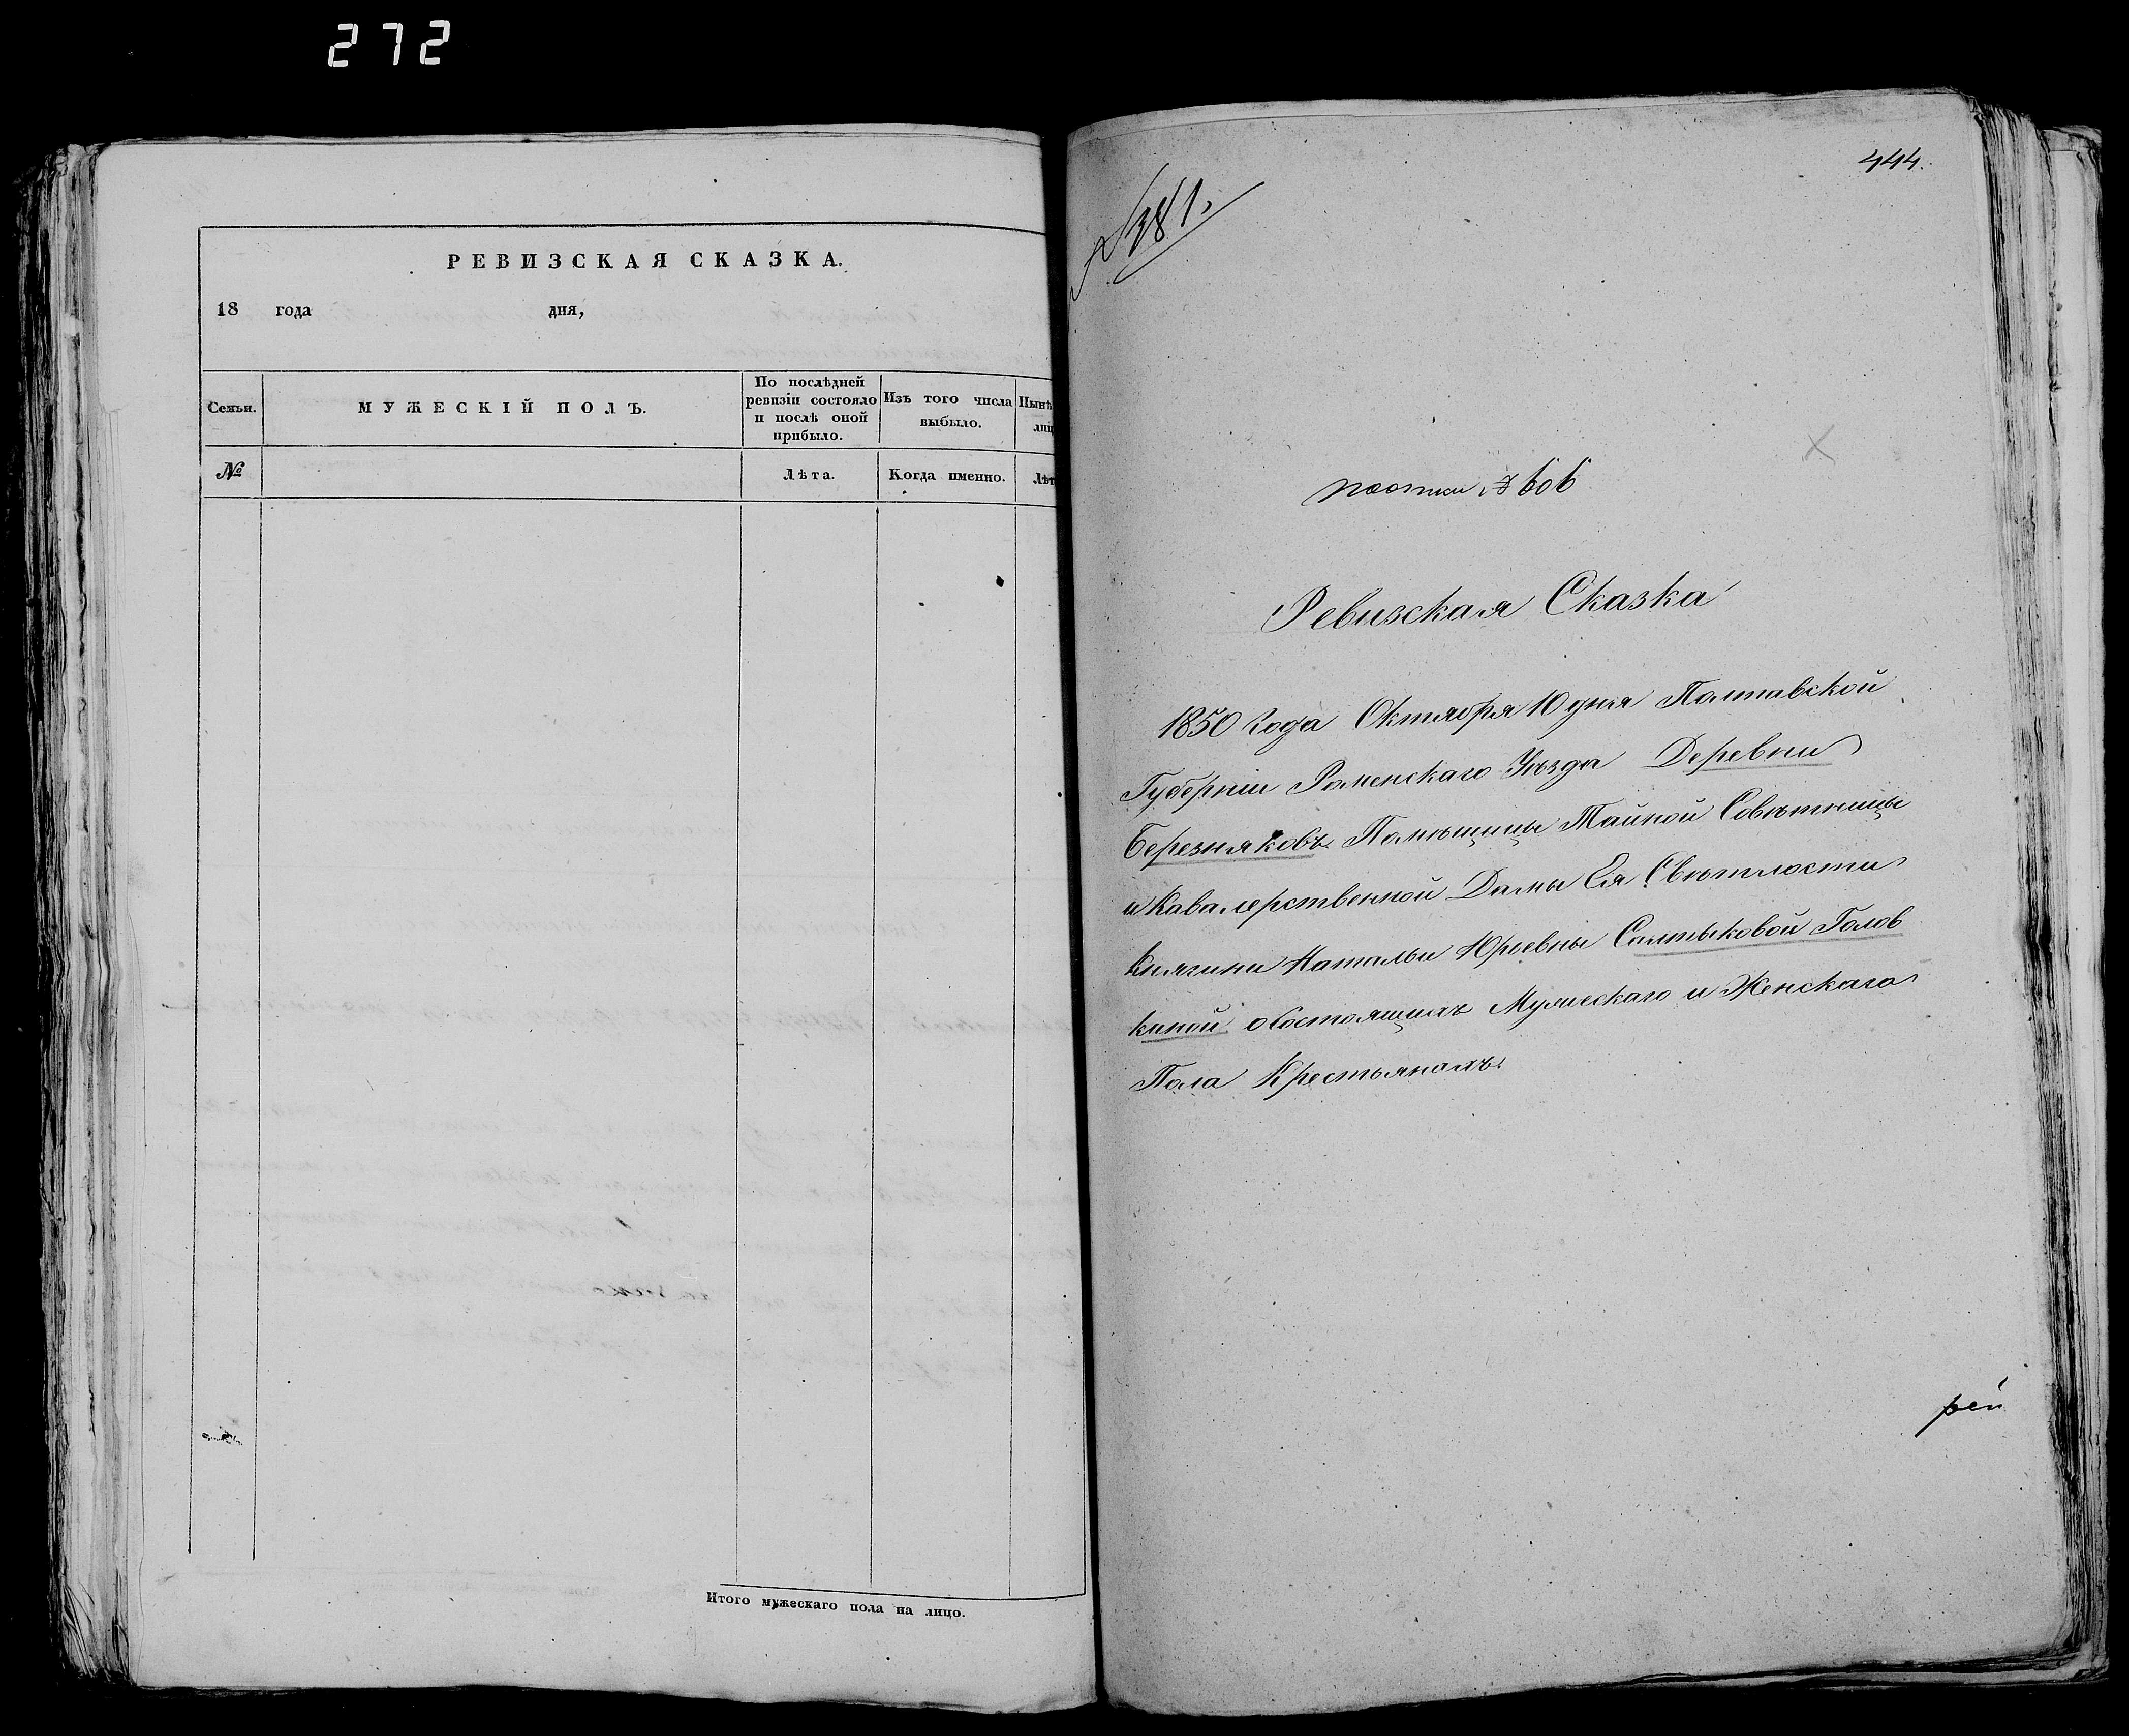 272
РЕВИЗСКАЯ СКАЗКА.
18 года дня,
Семьи.
МУЖЕСКІЙ ПОЛЪ.
По послѣдней
ревизіи состояло
и послѣ оной
прибыло.
Изъ того числа
выбыло.
Нынѣ
лиц
№
Лѣта.
Когда именно.
Лѣт
Итого мужескаго пола на лицо.
444.
№ 381.
№ 606
Ревизская Сказка
1850 Года Октября 10 дня Полтавской
Губерніи Роменскаго Уѣзда Деревни
Березняковъ Помѣщицы Тайной Совѣтницы
и Кавалерственной Дамы Ея Свѣтлости
Княгини Натальи Юрьевны Салтыковой Голов
киной о Состоящихъ Мужескаго и Женскаго
Пола Крестьянахъ.